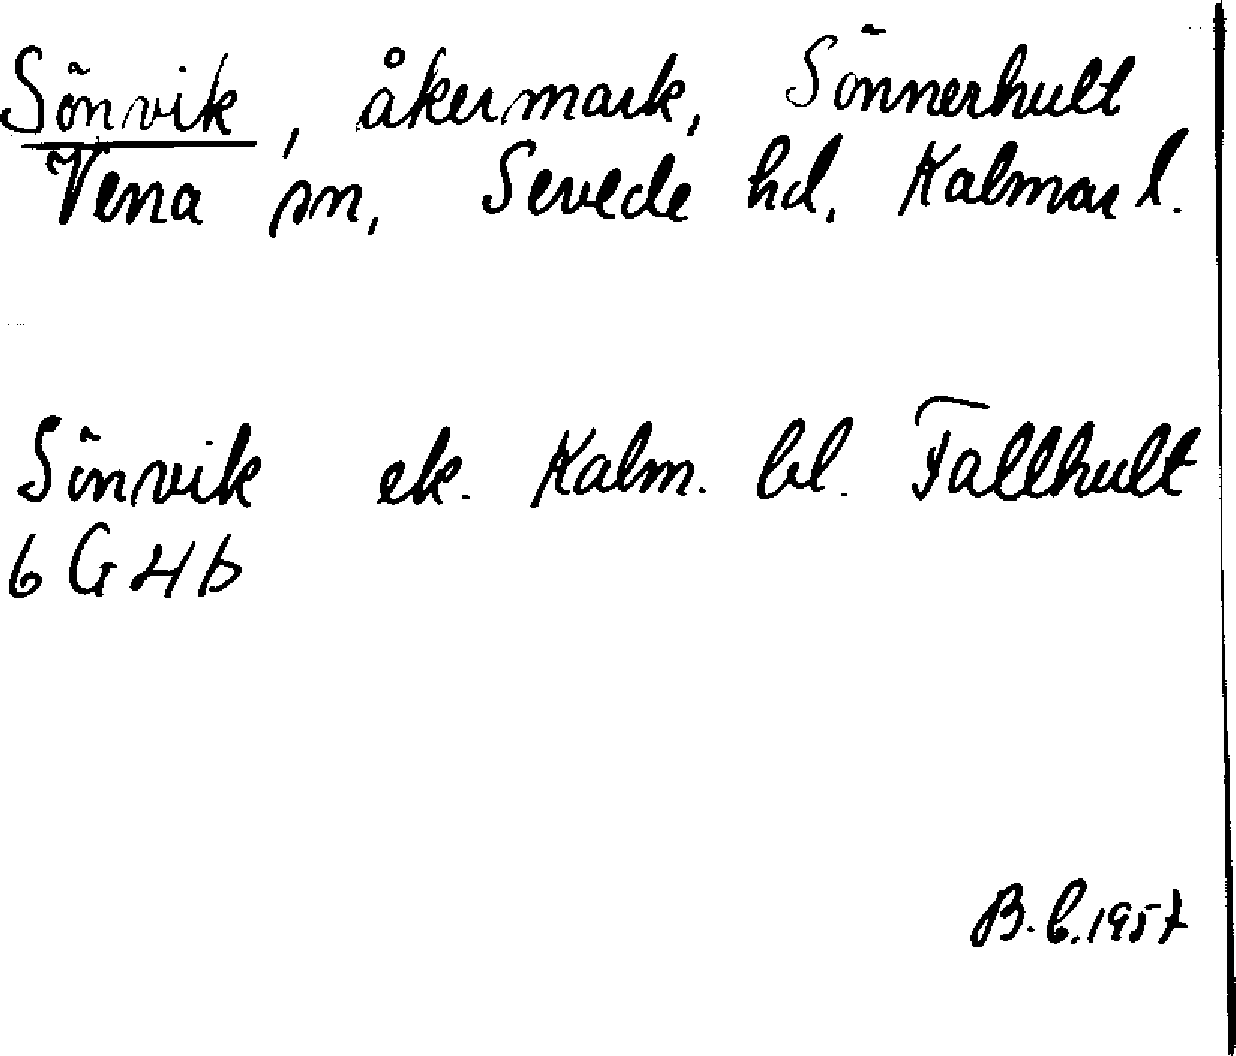 Sönvik, åkermark, Sönnerhult
Vena sn, Sevede hd, Kalmar l.
Sönvik ek. Kalm. bl. Fallhult
6 G 4 b
B. C. 1957